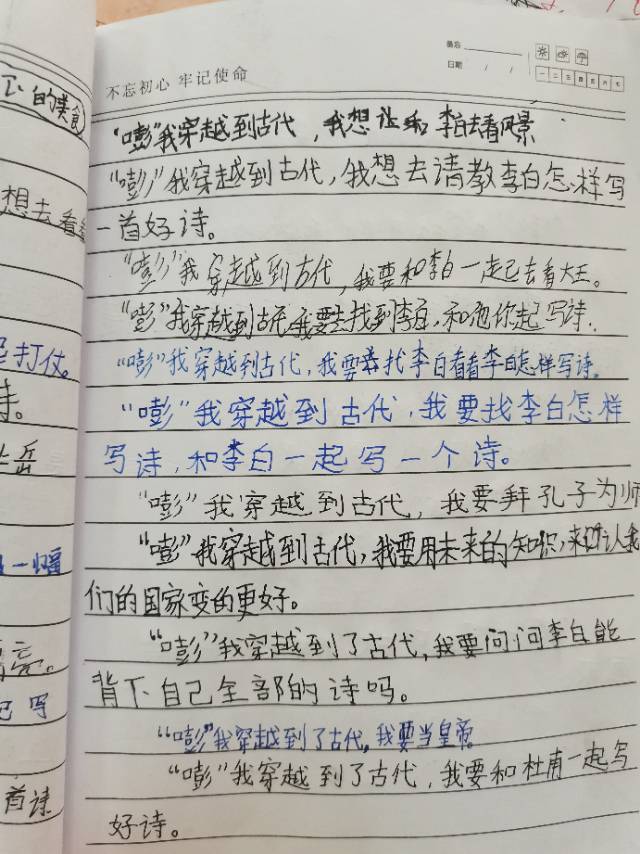 不忘初心 牢记使命
备忘
日期 / /
一 二 三 四 五 六 七
"嘭"我穿越到古代，我想让和李白去看风景
"嘭"我穿越到古代，我想去请教李白怎样写
一首好诗。
"嘭"我穿越到古代，我要和李白一起已去看大王。
"嘭"我穿越到古代我要去找到李白，和他你起写诗。
"嘭"我穿越到古代，我要去找李白看看李白怎样写诗。
"嘭"我穿越到古代，我要找李白怎样
写诗，和李白一起写一个诗。
"嘭"我穿越到古代，我要拜孔子为师
"嘭"我穿越到古代，我要用未来的知识，来让我
们的国家变的更好。
"嘭"我穿越到了古代，我要问问李白能
背下自己全部的诗吗。
"嘭"我穿越到了古代，我要当皇帝。
"嘭"我穿越到了古代，我要和杜甫一起写
好诗。
的美食
想去看
打仗。
诗。
岳
一幅
亮。
写
首诗